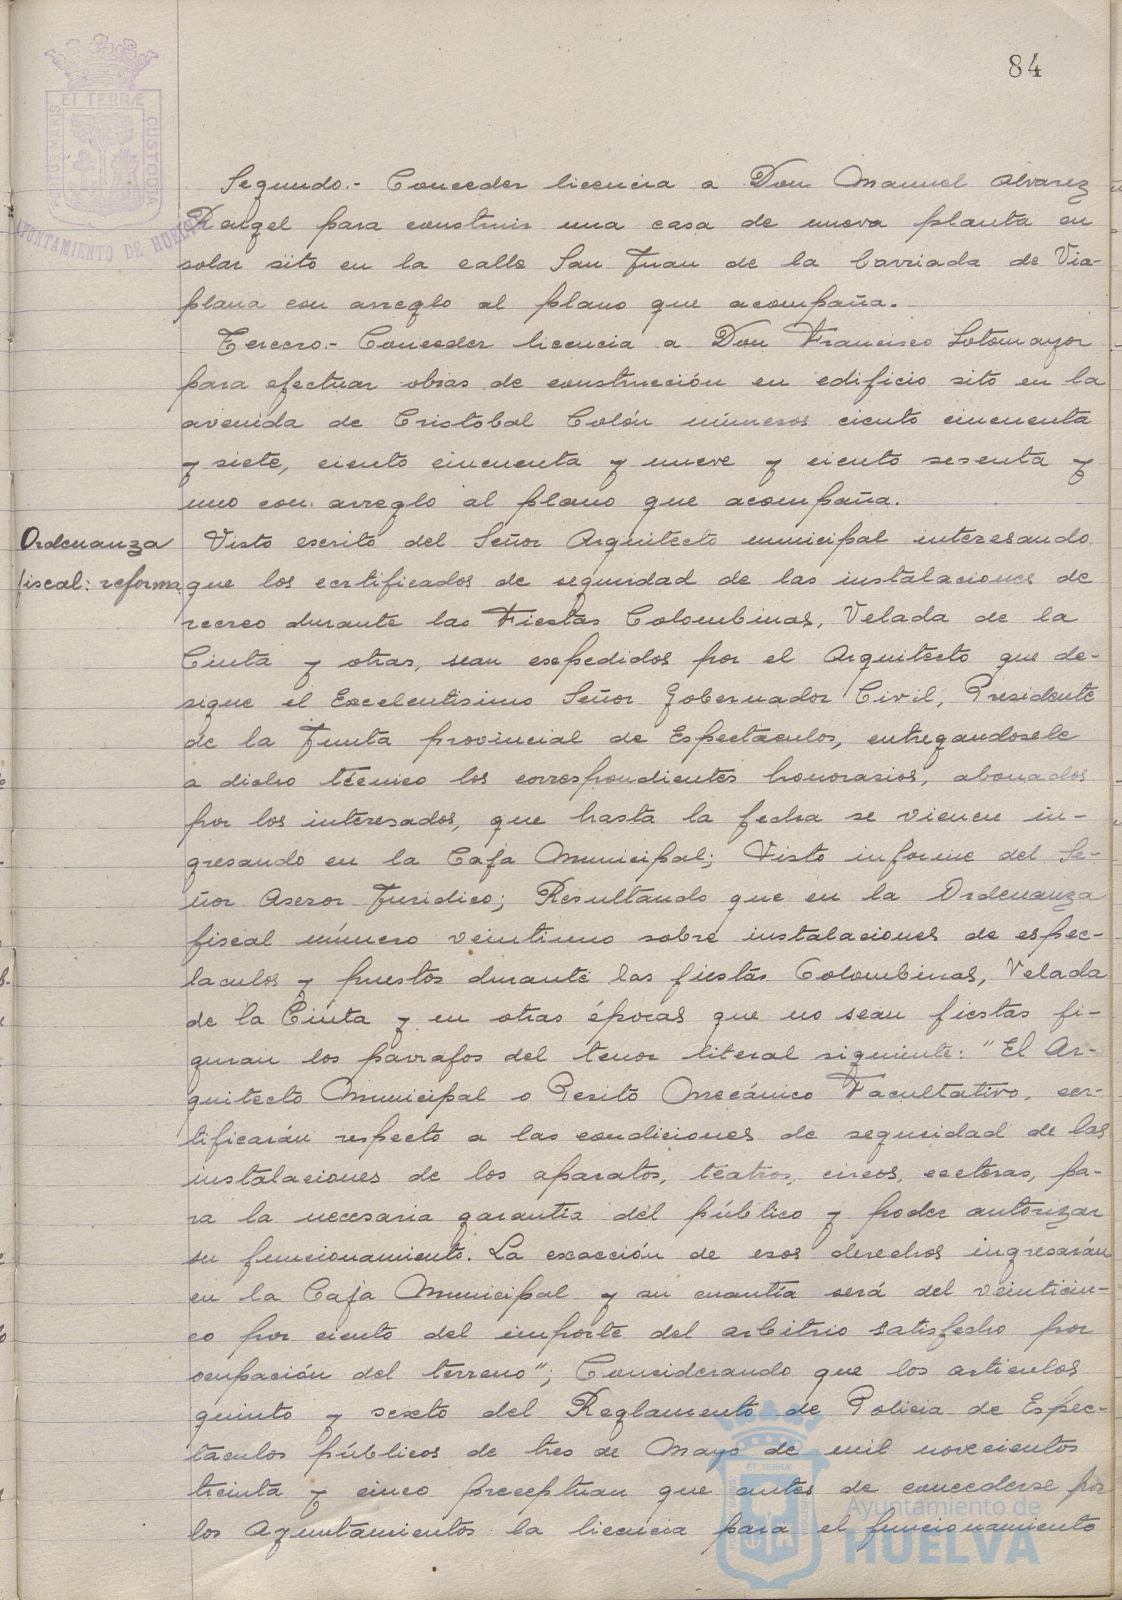 84
ET TERRÆ
CUSTODIA
AYUNTAMIENTO DE HUELVA
Segundo.- Conceder licencia a Don Manuel Alvarez
Rangel para construir una casa de nueva planta en
solar sito en la calle San Juan de la barriada de Via-
plana con arreglo al plano que acompaña.
Tercero.- Conceder licencia a Don Francisco Sotomayor
para efectuar obras de construcción en edificio sito en la
avenida de Cristobal Colón números ciento cincuenta
y siete, ciento cincuenta y nueve y ciento sesenta y
uno con arreglo al plano que acompaña.
Ordenanza
fiscal: reforma
Visto escrito del Señor Arquitecto municipal interesando
que los certificados de seguridad de las instalaciones de
recreo durante las Fiestas Colombinas, Velada de la
Cinta y otras, sean expedidos por el Arquitecto que de-
signe el Excelentisimo Señor Gobernador Civil, Presidente
de la Junta provincial de Espectaculos, entregandosele
a dicho técnico los correspondientes honorarios, abonados
por los interesados, que hasta la fecha se vienen in-
gresando en la Caja Municipal; Visto informe del Se-
ñor Asesor Juridico; Resultando que en la Ordenanza
fiscal número veintiuno sobre instalaciones de espec-
taculos y puestos durante las fiestas Colombinas, Velada
de la Cinta y en otras épocas que no sean fiestas fi-
guran los parrafos del tenor literal siguiente: "El Ar-
quitecto Municipal o Perito Mecánico Facultativo, cer-
tificarán respecto a las condiciones de seguridad de las
instalaciones de los aparatos, teatros, circos, ecteras, pa-
ra la necesaria garantia del público y poder autorizar
su funcionamiento. La exacción de esos derechos ingresarán
en la Caja Municipal y su cuantía será del veinticin-
co por ciento del importe del arbitrio satisfecho por
ocupación del terreno"; Considerando que los articulos
quinto y sexto del Reglamento de Policia de Espec-
táculos públicos de tres de Mayo de mil novecientos
treinta y cinco preceptuan que antes de concederse por
los Ayuntamientos la licencia para el funcionamiento
Ayuntamiento de
HUELVA